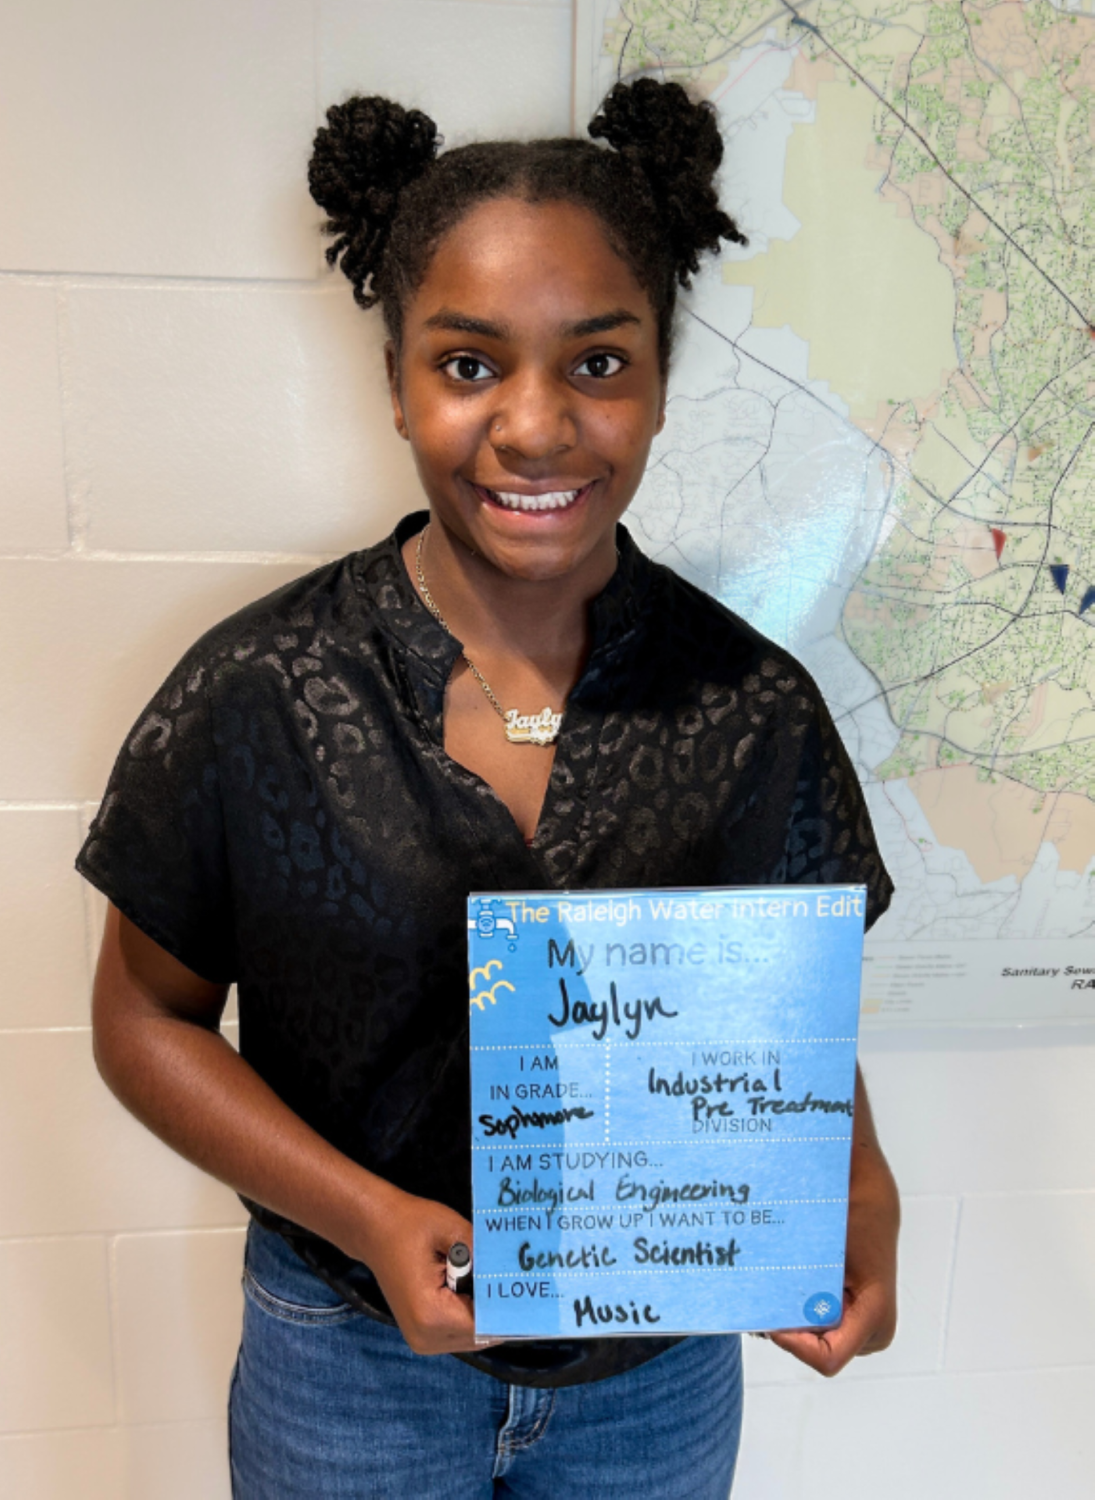 Jayly
The Raleigh Water Intern Edit
My name is...
Jaylyn
I AM
IN GRADE...
Sophomore
I WORK IN
Industrial
Pre Treatment
DIVISION
I AM STUDYING...
Biological Engineering
WHEN I GROW UP I WANT TO BE...
Genetic Scientist
I LOVE...
Music
Sanitary Sew
RA